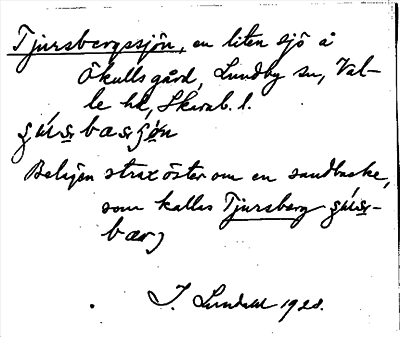 Tjursbergssjön, en liten sjö å
Ökulls gård, Lundby sn, Val-
le hd, Skarab. l.
Beligen strax öster om en sandbacke,
som kallas Tjursberg
J. Lundahl 1928.